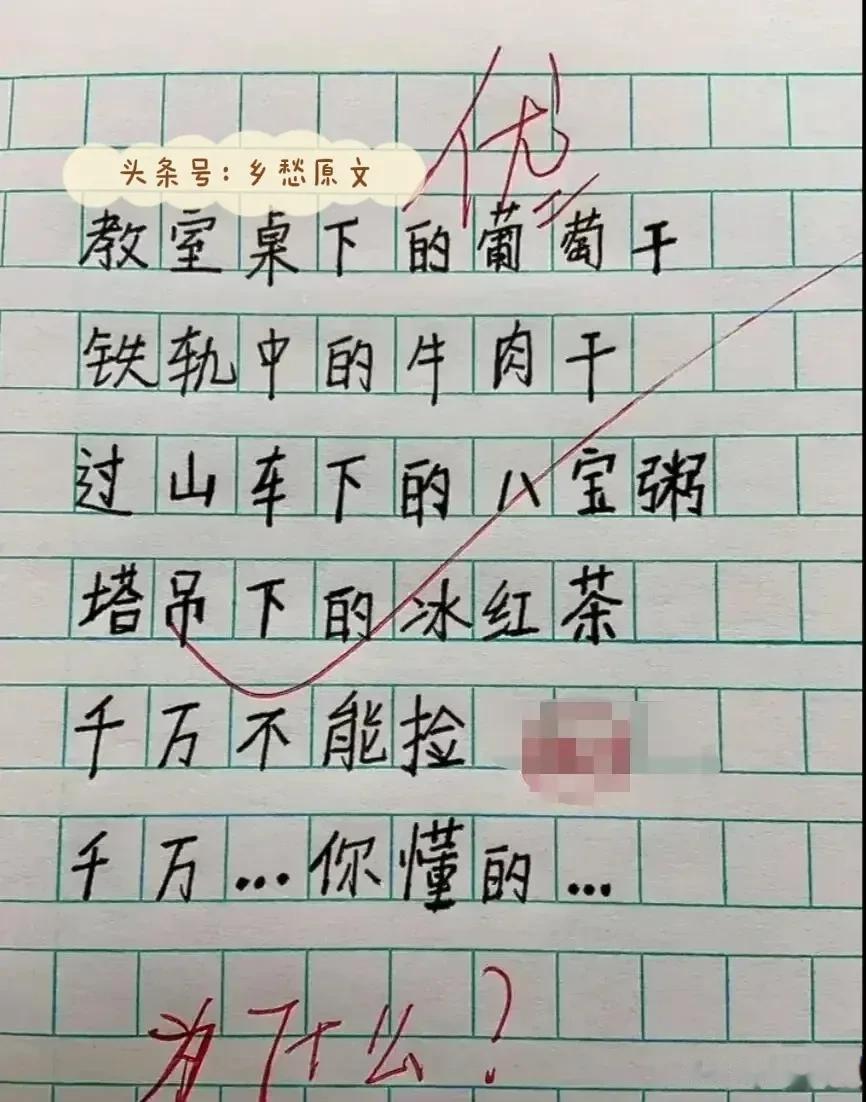 优
头条号:乡愁原文
教室桌下的葡萄干
铁轨中的牛肉干
过山车下的八宝粥
塔吊下的冰红茶
千万不能捡
千万…你懂的…
为什么?